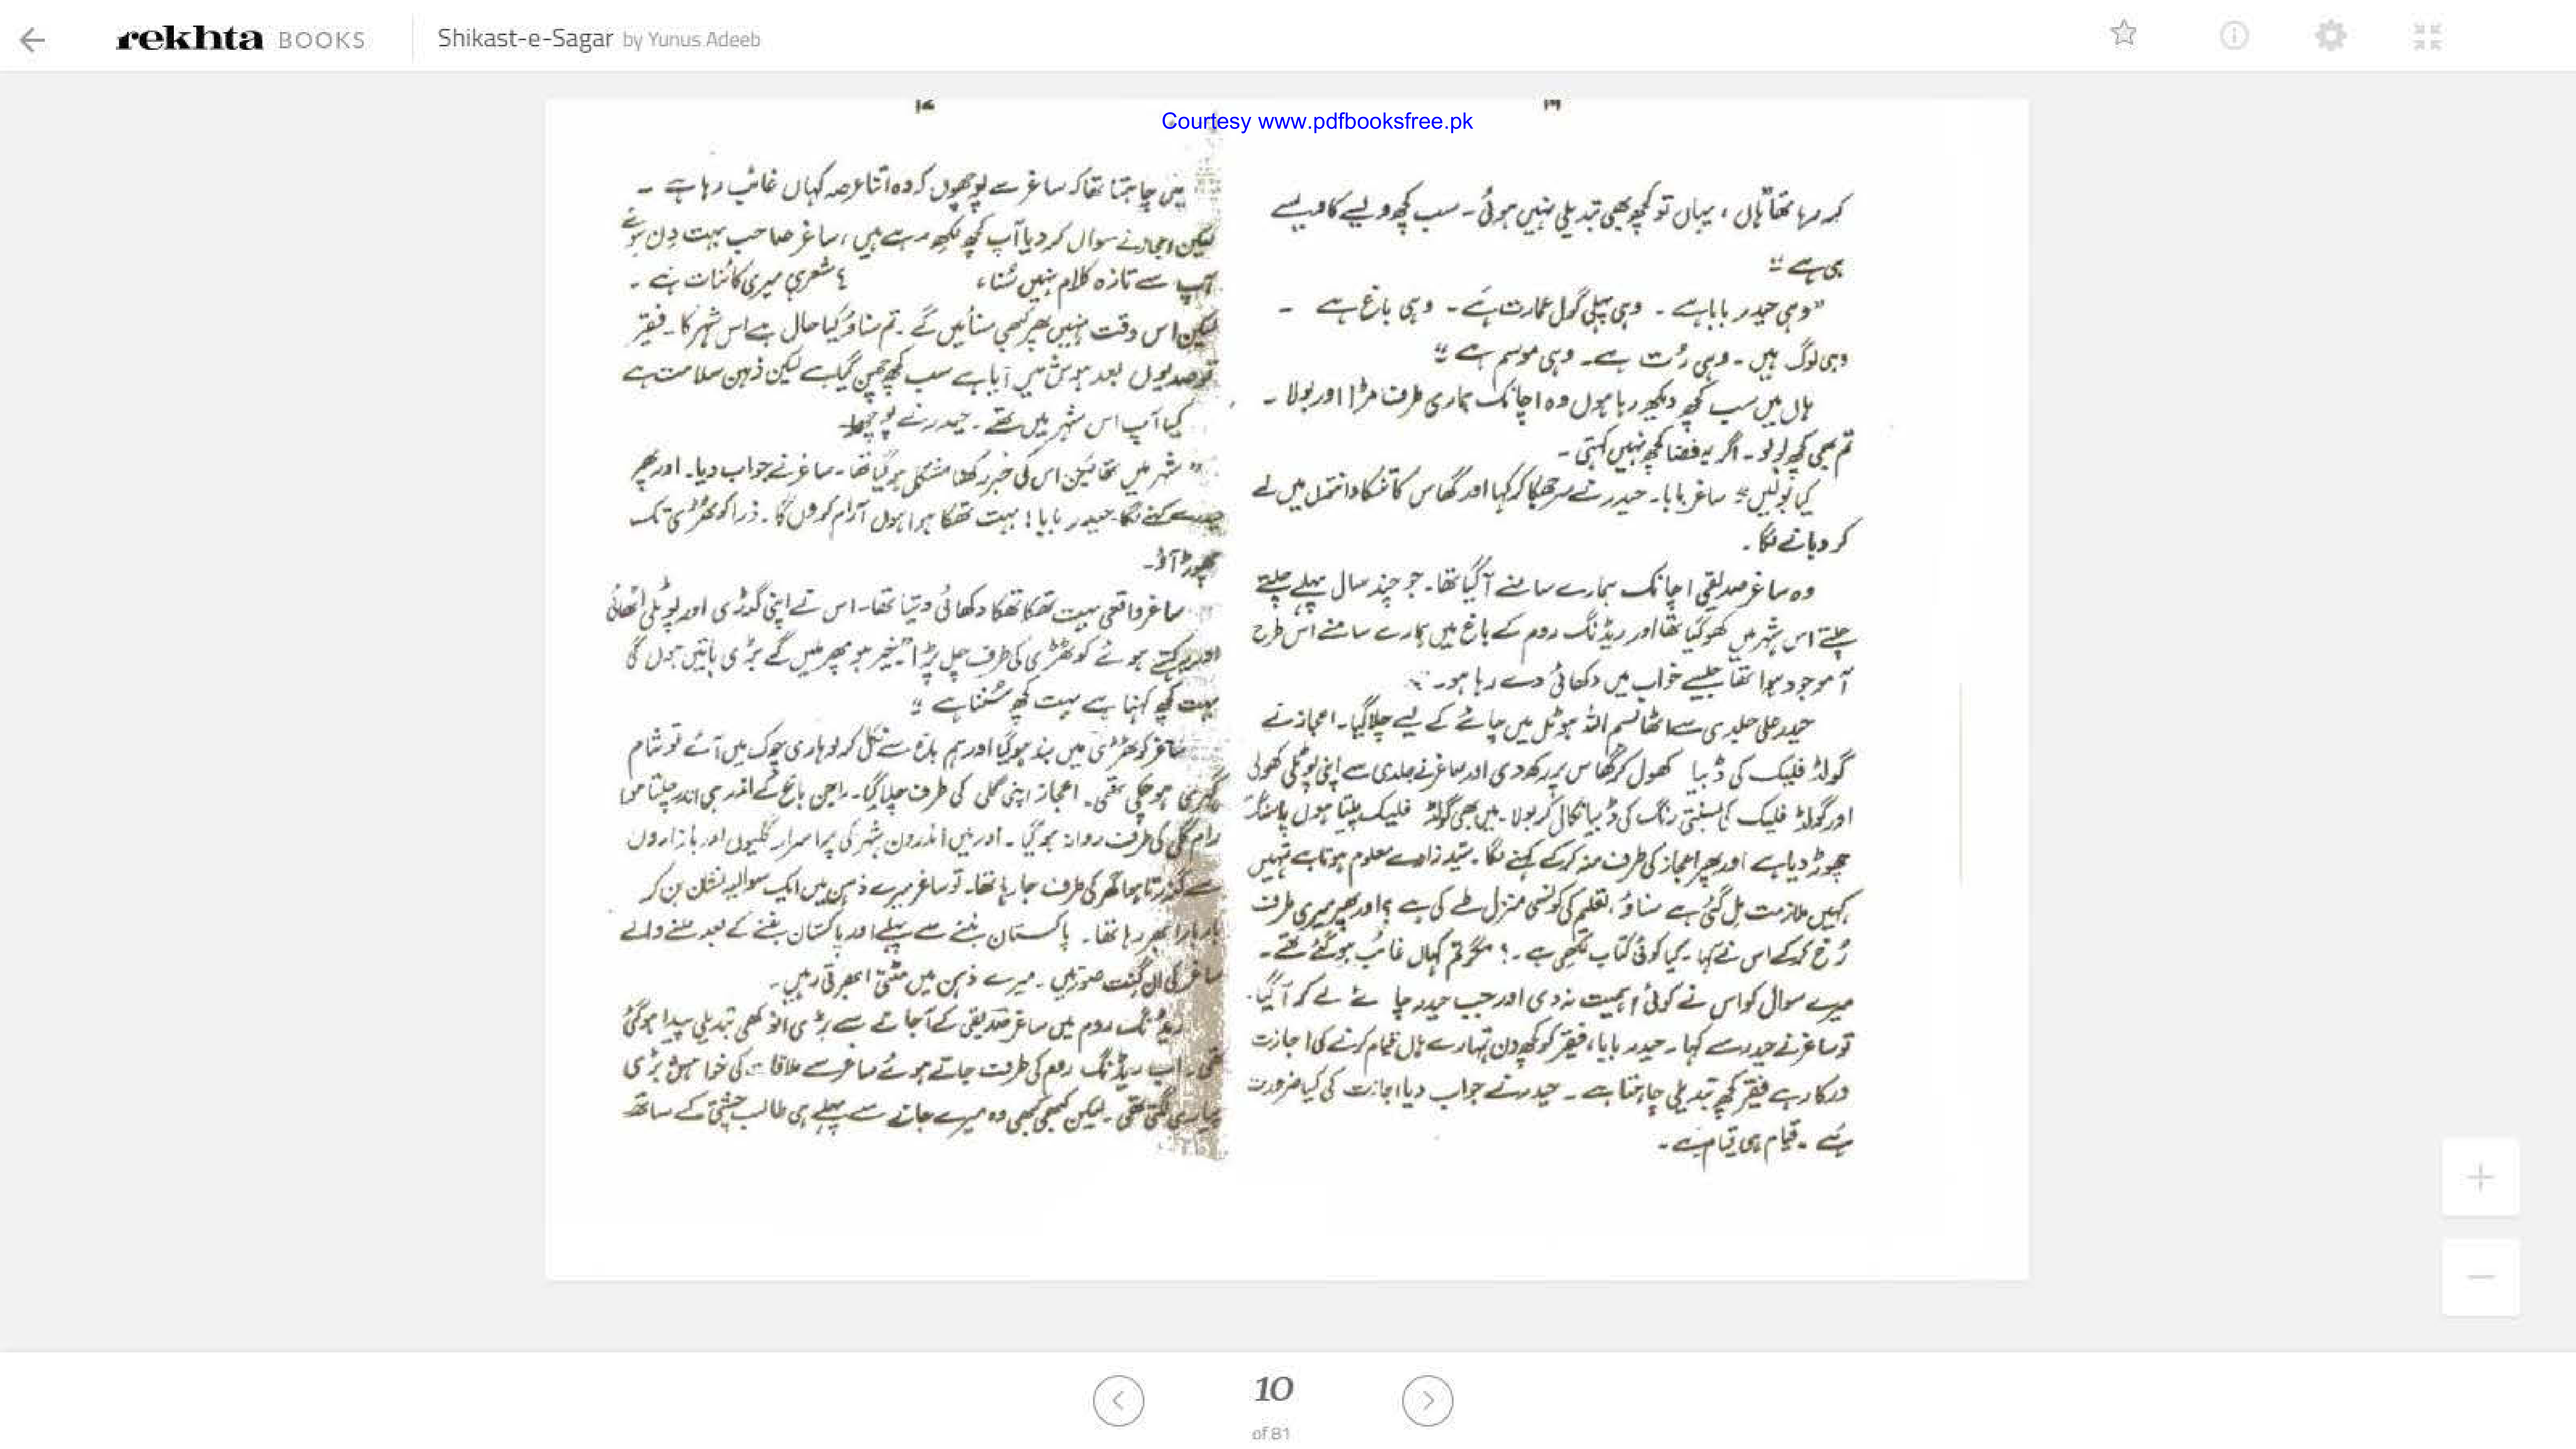 rekhta BOOKS
Shikast-e-Sagar by Yunus Adeeb
Courtesy www.pdfbooksfree.pk
کہہ رہا تھا ہاں، یہاں تو کچھ بھی تبدیلی نہیں ہوئی۔ سب کچھ ویسے کا ویسے
ہی ہے“
”وہی حیدر بابا ہے۔ وہی پیلی گول عمارت ہے۔ وہی باغ ہے۔
وہی لوگ ہیں۔ وہی رُت ہے۔ وہی موسم ہے“
ہاں میں سب کچھ دیکھ رہا ہوں وہ اچانک ہماری طرف مڑا اور بولا۔
تم بھی کچھ بولو۔ اگر یہ فضا کچھ نہیں کہتی۔
کیا بولیں“ ساغر بابا۔ حیدر نے سر جھکا کر کہا اور گھاس کا تنکا دانتوں میں لے
کر دبانے لگا۔
وہ ساغر صدیقی اچانک ہمارے سامنے آ گیا تھا۔ جو چند سال پہلے چلتے
چلتے اس شہر میں کھو گیا تھا اور ریڈنگ روم کے باغ میں ہمارے سامنے اس طرح
آ موجود ہوا تھا جیسے خواب میں دکھائی دے رہا ہو۔
حیدر علی جلدی سے اٹھا بسم اللہ ہوٹل میں چائے کے لیے چلا گیا۔ اعجاز نے
گولڈ فلیک کی ڈبیا کھول کر گھاس پر رکھ دی اور ساغر نے جلدی سے اپنی پوٹلی کھولی
اور گولڈ فلیک کی بسنتی رنگ کی ڈبیا نکال کر بولا۔ میں بھی گولڈ فلیک پیتا ہوں پاسنگ
چھوڑ دیا ہے اور پھر اعجاز کی طرف منہ کر کے کہنے لگا۔ سید زادے معلوم ہوتا ہے تمہیں
کہیں ملازمت مل گئی ہے سناؤ، تعلیم کی کونسی منزل طے کی ہے؟ اور پھر میری طرف
رُخ کر کے اس نے کہا۔ کیا کوئی کتاب لکھی ہے۔؟ مگر تم کہاں غائب ہو گئے تھے۔
میرے سوال کو اس نے کوئی اہمیت نہ دی اور جب حیدر چائے لے کر آ گیا۔
تو ساغر نے حیدر سے کہا۔ حیدر بابا، فقیر کو کچھ دن تمہارے ہاں قیام کرنے کی اجازت
درکار ہے فقیر کچھ تبدیلی چاہتا ہے۔ حیدر نے جواب دیا اجازت کی کیا ضرورت
ہے۔ قیام ہی قیام ہے۔
۱۷
میں چاہتا تھا کہ ساغر سے پوچھوں کہ وہ اتنا عرصہ کہاں غائب رہا ہے۔
لیکن اعجاز نے سوال کر دیا آپ کچھ لکھ رہے ہیں، ساغر صاحب بہت دن ہوئے
آپ سے تازہ کلام نہیں سُنا، شعر ہی میری کائنات ہے۔
لیکن اس وقت نہیں پھر کبھی سنائیں گے۔ تم سناؤ کیا حال ہے اس شہر کا۔ فقیر
تو صدیوں بعد ہوش میں آیا ہے سب کچھ چھن گیا ہے لیکن ذہن سلامت ہے
کیا آپ اس شہر میں تھے۔ حیدر نے پوچھا۔
”شہر میں تھا لیکن اس کی خبر رکھنا مشکل ہو گیا تھا۔ ساغر نے جواب دیا۔ اور پھر
حیدر سے کہنے لگا۔ حیدر بابا! بہت تھکا ہوا ہوں آرام کروں گا۔ ذرا کوٹھڑی تک
چھوڑ آؤ۔
ساغر واقعی بہت تھکا تھکا دکھائی دیتا تھا۔ اس نے اپنی گودڑی اور پوٹلی اٹھائی
اور یہ کہتے ہوئے کوٹھڑی کی طرف چل پڑا ”خیر ہو پھر ملیں گے بڑی باتیں ہوں گی
بہت کچھ کہنا ہے بہت کچھ سُننا ہے“
ساغر کوٹھڑی میں بند ہو گیا اور ہم باڑہ سے نکل کر لوہاری چوک میں آئے تو شام
گہری ہو چکی تھی۔ اعجاز اپنی گلی کی طرف چلا گیا۔ راجن باغ کے اندر ہی اندر چلتا ہوا
رام گلی کی طرف روانہ ہو گیا۔ اور میں اندرون شہر کی پراسرار گلیوں اور بازاروں
سے گذرتا ہوا گھر کی طرف جا رہا تھا۔ تو ساغر میرے ذہن میں ایک سوالیہ نشان بن کر
بار بار ابھر رہا تھا۔ پاکستان بننے سے پہلے اور پاکستان بننے کے بعد ملنے والے
ساغر کی ان گنت صورتیں۔ میرے ذہن میں مٹتی ابھرتی رہیں۔
ریڈنگ روم میں ساغر صدیقی کے آ جانے سے بڑی انوکھی تبدیلی پیدا ہو گئی
تھی۔ اب ریڈنگ روم کی طرف جاتے ہوئے ساغر سے ملاقات کی خواہش بڑی
پیاری لگتی تھی۔ لیکن کبھی کبھی وہ میرے جانے سے پہلے ہی طالب چشتی کے ساتھ
10
of 81